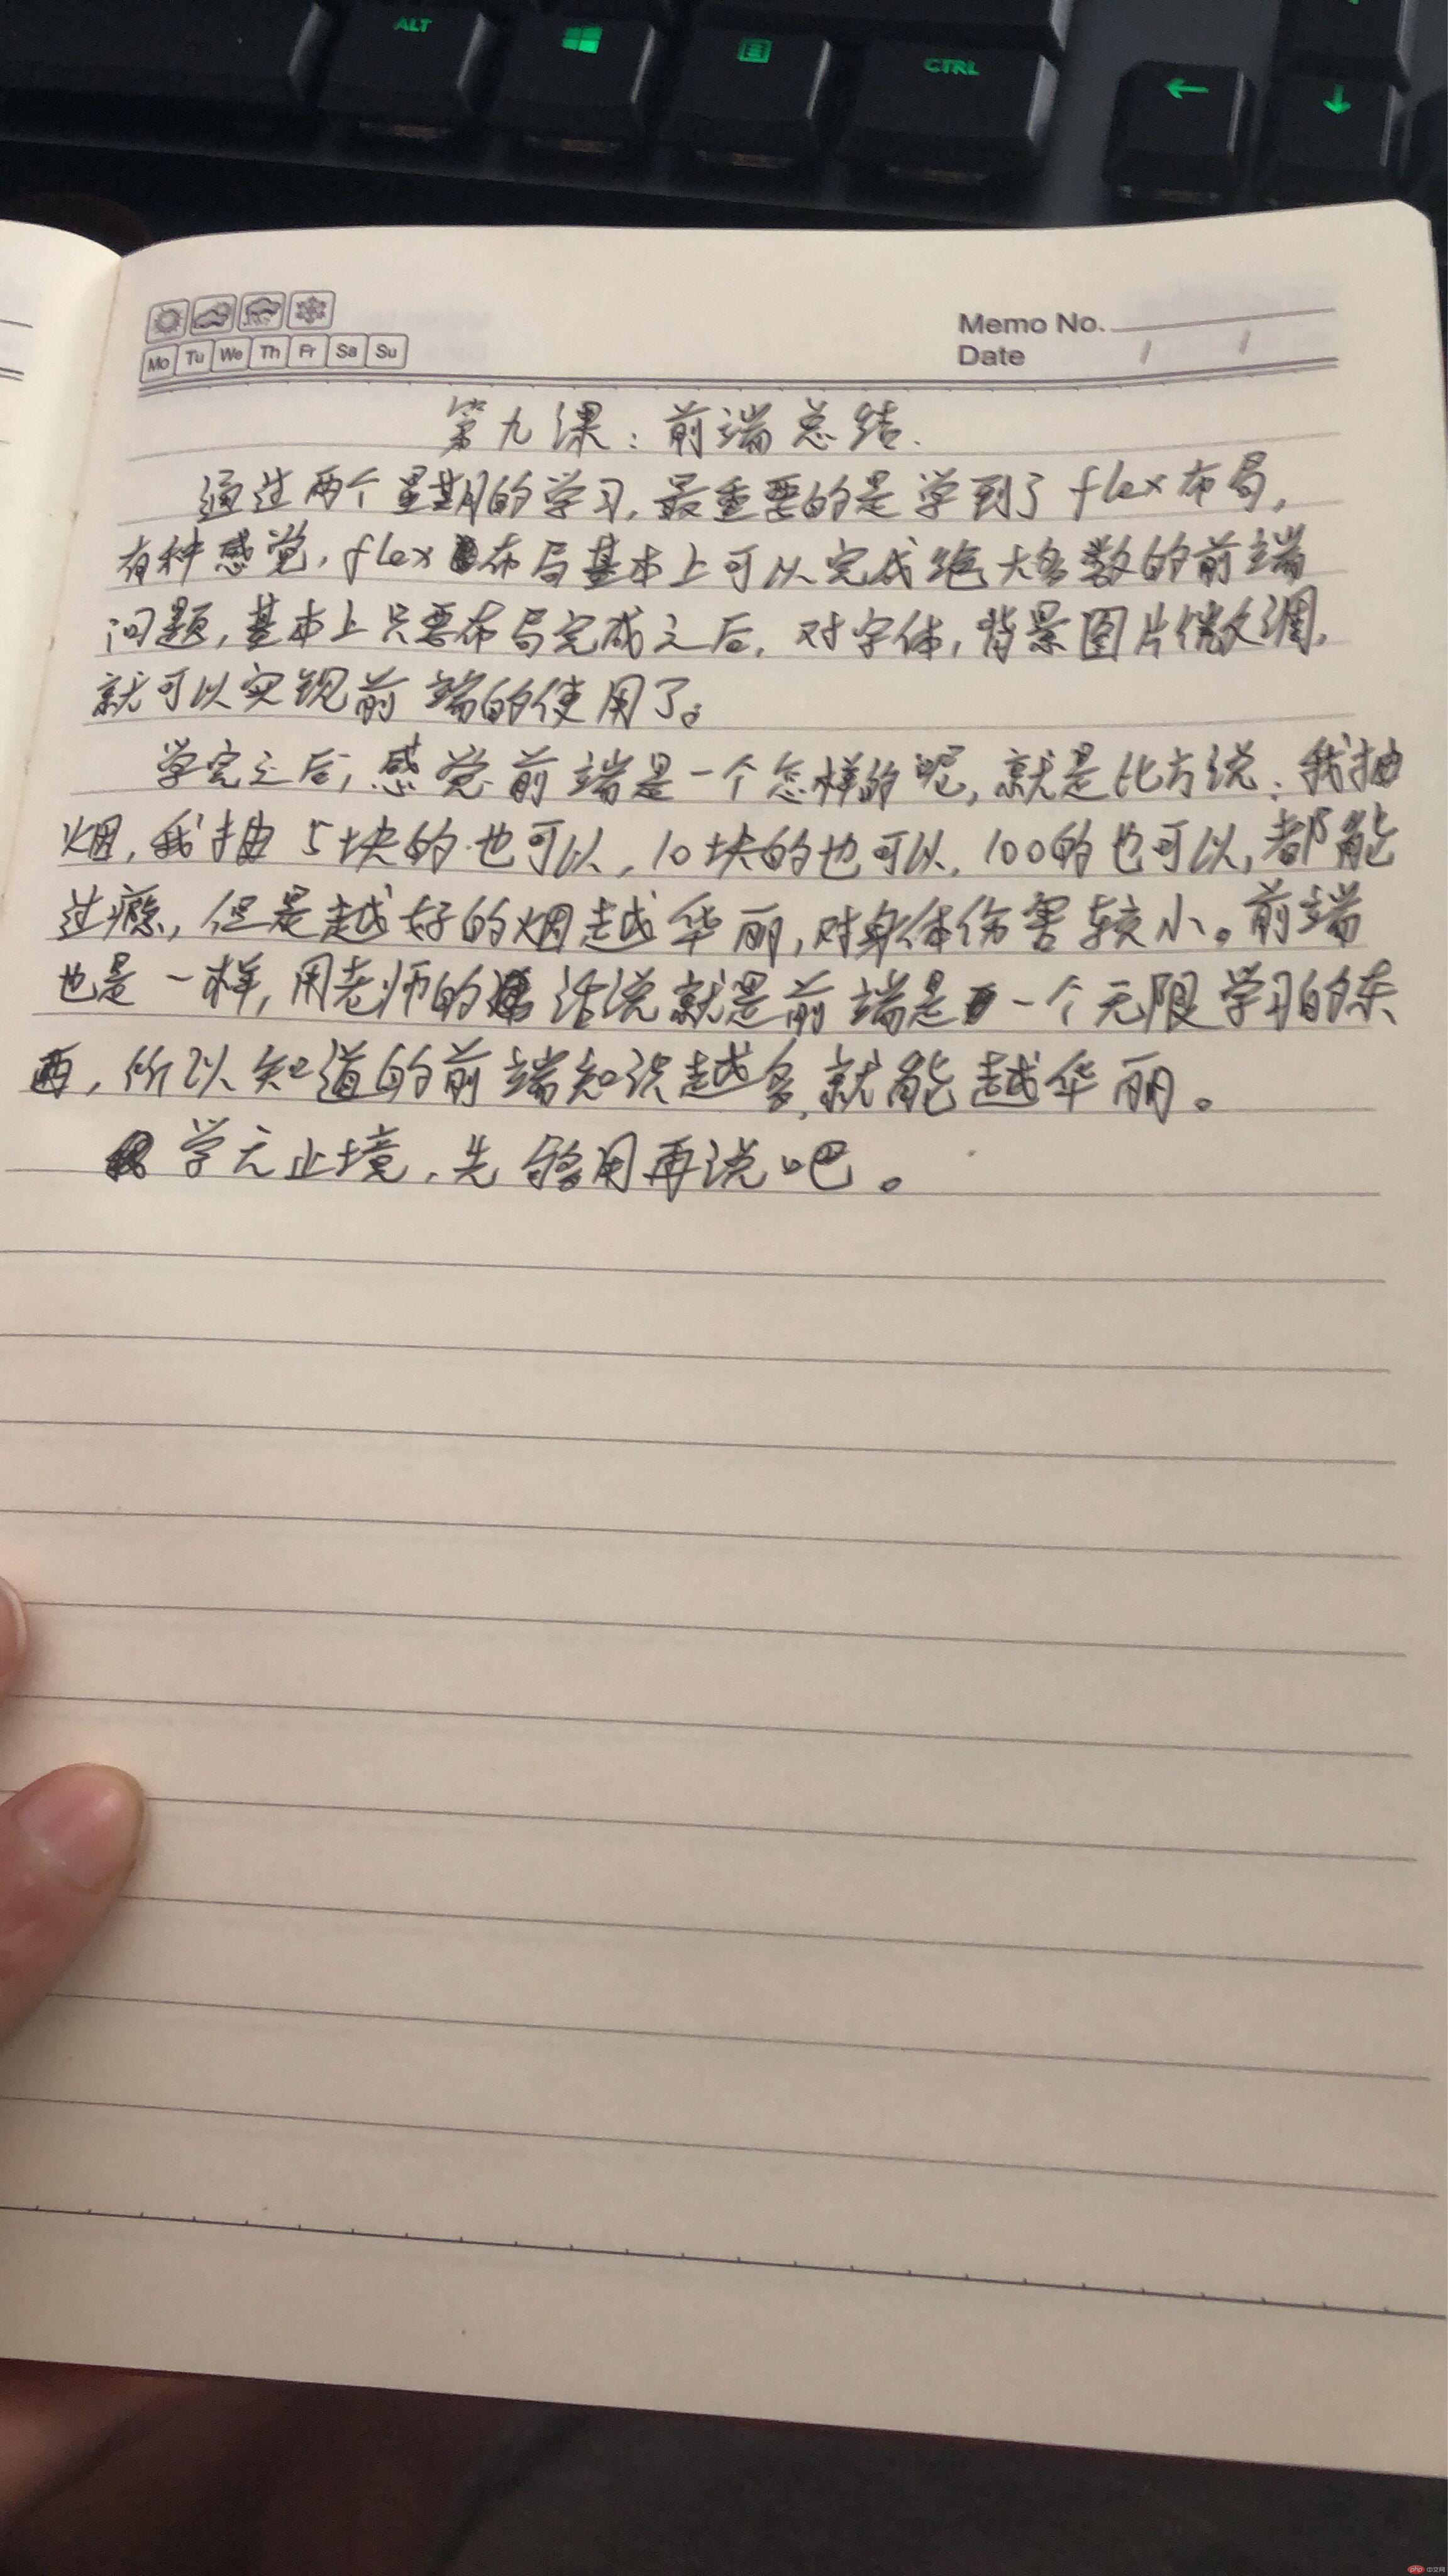 ALT
CTRL
Memo No.
Mo Tu We Th Fr Sa Su
Date / /
第九课：前端总结.
通过两个星期的学习,最重要的是学到了flex布局,
有种感觉,flex布局基本上可以完成绝大多数的前端
问题,基本上只要布局完成之后,对字体,背景图片微调,
就可以实现前端的使用了。
学完之后,感觉前端是一个怎样的呢,就是比方说:我抽
烟,我抽5块的也可以,10块的也可以,100的也可以,都能
过瘾,但是越好的烟越华丽,对身体伤害较小。前端
也是一样,用老师的话说就是前端是一个无限学习的东
西,所以知道的前端知识越多,就能越华丽。
学无止境,先够用再说吧。
php 中文网